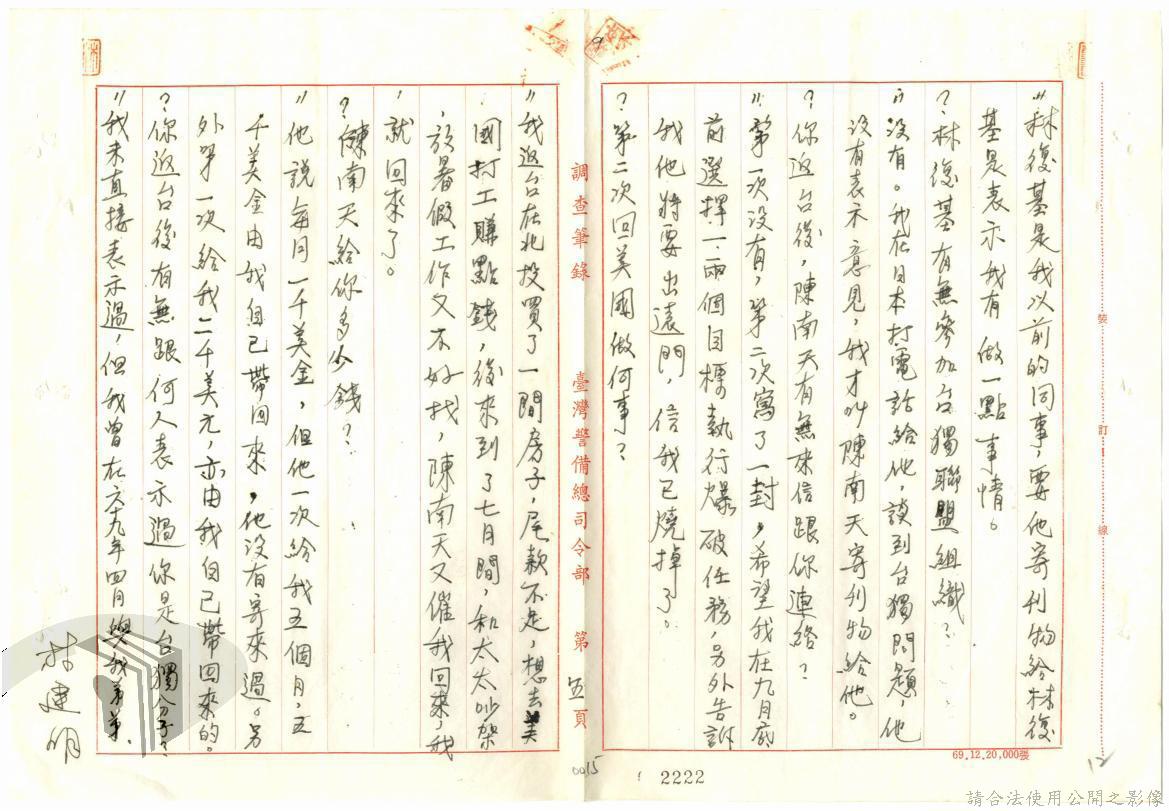 〃林復基是我以前的同事,要他寄刊物給林復
基是表示我有做一點事情。
?林復基有無參加台獨聯盟組織?
〃沒有。我在日本打電話給他,談到台獨問題,他
沒有表示意見,我才叫陳南天寄刊物給他。
?你返台後,陳南天有無來信跟你連絡?
〃第一次沒有,第二次寫了一封,希望我在九月底
前選擇一、兩個目標執行爆破任務,另外告訴
我他將要出遠門,信我已燒掉了。
?第二次回美國做何事?
調查筆錄 臺灣警備總司令部 第五頁
〃我返台在北投買了一間房子,尾款不足,想去美
國打工賺點錢,後來到了七月間,和太太吵架
,放暑假工作又不好找,陳南天又催我回來,我
就回來了。
?陳南天給你多少錢?
〃他說每月一千美金,但他一次給我五個月,五
千美金由我自己帶回來,他沒有寄來過。另
外第一次給我二千美元,亦由我自己帶回來的。
?你返台後有無跟何人表示過你是台獨分子?
〃我未直接表示過,但我曾在六十九年四月與我弟弟、
林建明
裝 訂 線
69.12.20,000張
12
0015
2222
請合法使用公開之影像